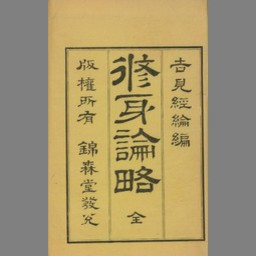 吉見經綸編
修身論略 全
版權所有 錦森堂發兌